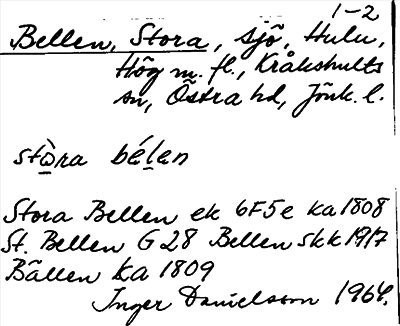 1-2
Bellen, Stora, sjö, Hulu,
Hög m. fl., Kråkshults
sn, Östra hd, Jönk. l.
stòra bélen
Stora Bellen ek 6F5e ka 1808
St. Bellen G 28 Bellen skk 1917
Bällen ka 1809
Inger Danielsson 1964.